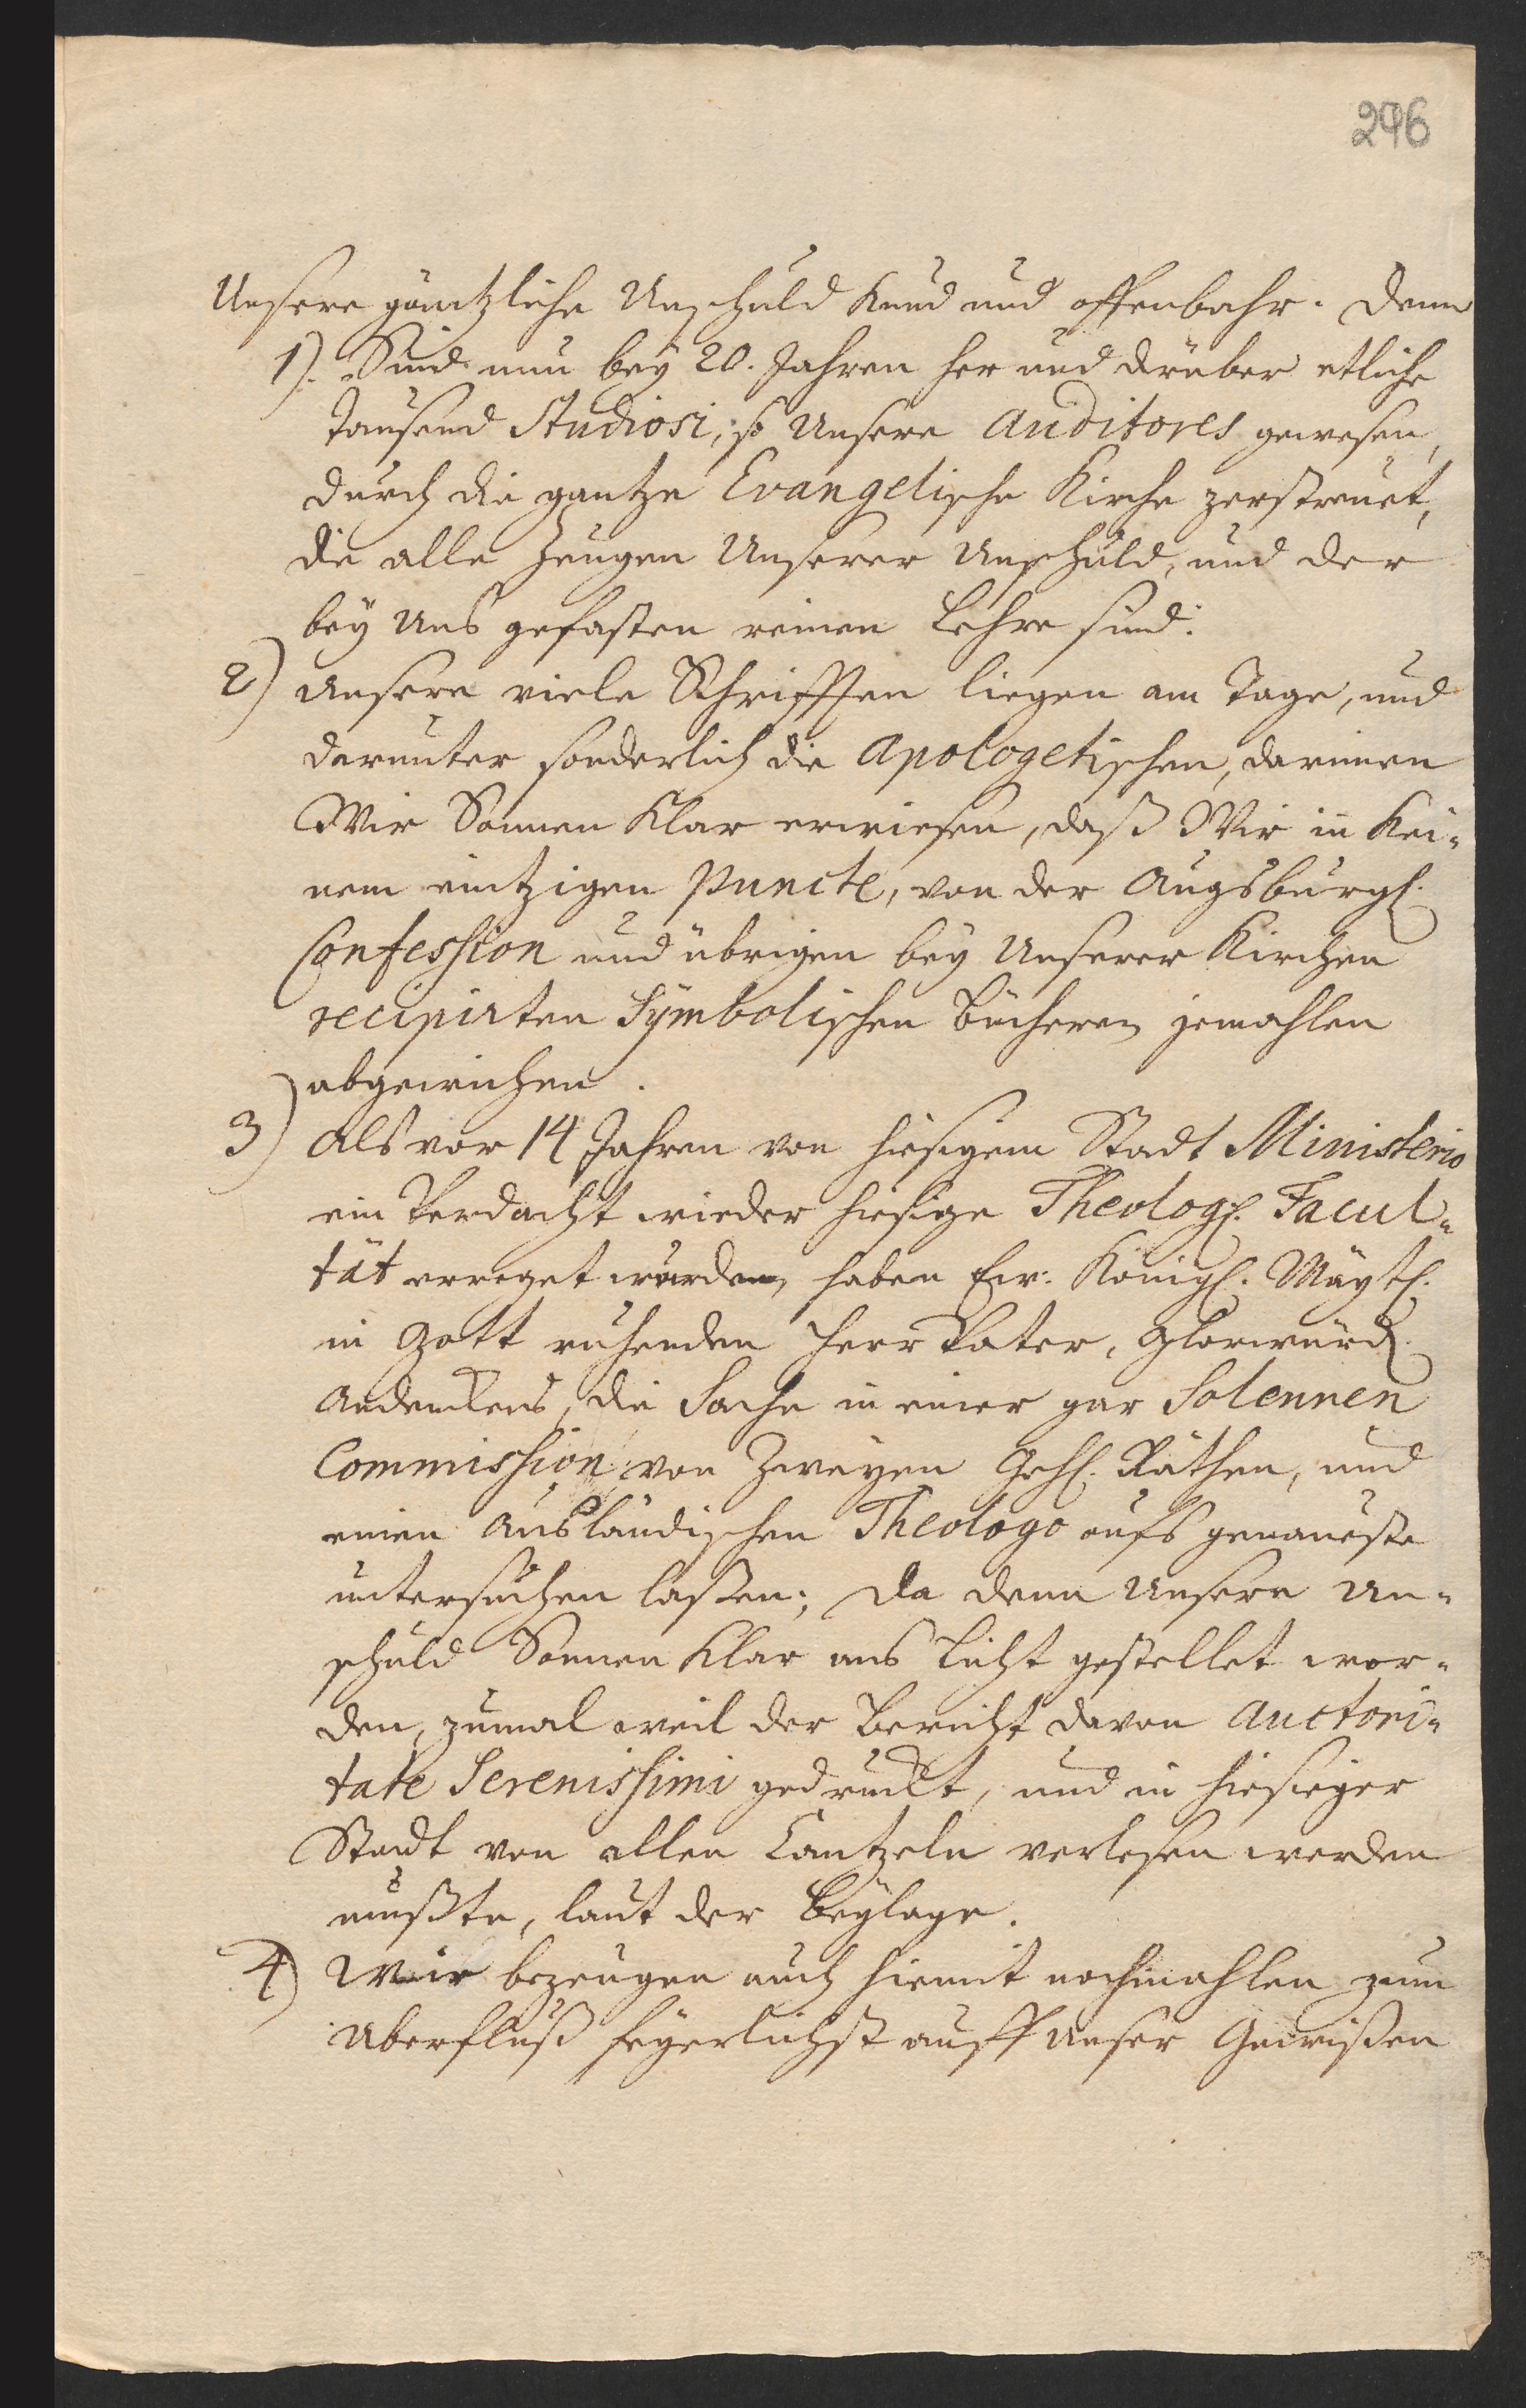 296
Unsere gäntzliche Unschuld kund und offenbahr. Denn
1). Sind nun bey 20. Jahren her und drüber etliche
Tausend Studiosi, so Unsere Auditores gewesen,
durch die gantze Evangelische Kirche zerstreuet,
die alle Zeugen Unserer Unschuld, und der
bey Uns gefasten reinen Lehre sind.
2) Unsere viele Schrifften liegen am Tage, und
darunter sonderlich die Apologetischen, darinnen
Wir Sonnen klar erwiesen, daß Wir in kei-
nem eintzigen Puncte, von der Augsburgl.
Confession und übrigen bey Unserer Kirchen
recipirten Symbolischen Büchern jemahlen
abgewichen.
3) Als vor 14 Jahren von hiesigem Stadt Ministerio
ein Verdacht wieder hiesige Theologl. Facul-
tät erreget wurden, haben Ew. Königl. Maytl.
in Gott ruhenden Herr Vater, Glorwürd.
Andenckens, die Sache in einer gar Solennen
Commission von Zweyen Gehl. Räthen, und
einen Ausländischen Theologo aufs genaueste
untersuchen laßen; Da denn Unsere Un-
schuld Sonnen klar ans Licht gestellet wor-
den, zumal weil der Bericht davon auctori-
tate Serenissimi gedruckt, und in hiesieger
Stadt von allen Cantzeln verlesen werden
mußte, laut der Beylage.
4) Wir bezeugen auch hiermit nochmahlen zum
Uberfluß feyerlichst auff Unser Gewißen